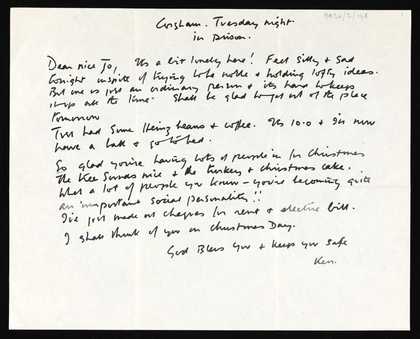 Corsham. Tuesday night
in prison.
Dear nice Jo, Its a bit lonely here! Feel silly & sad
tonight inspite of trying to be noble & holding lofty ideas.
But one is just an ordinary person & its hard to keep
it up all the time. Shall be glad to get out of the place
tomorrow
Just had some Heinz beans & coffee. Its 10.0 & I'm now
have a bath & go to bed.
So glad you're having lots of people in for Christmas
The tree sounds nice & the turkey & christmas cake.
What a lot of people you know - you're becoming quite
an important social personality!!
I've just made out cheques for rent & electric bill.
I shall think of you on Christmas Day.
God Bless you & keep you safe
Ken.